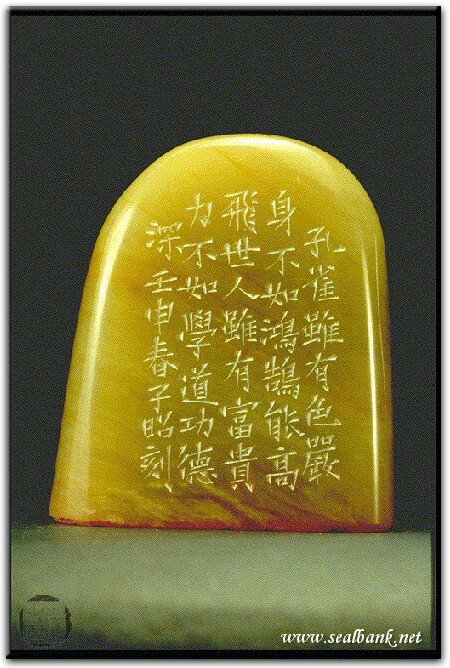 孔雀雖有色嚴
身不如鴻鵠能高
飛世人雖有富貴
力不如學道功德
深壬申春子昭刻
www.sealbank.net